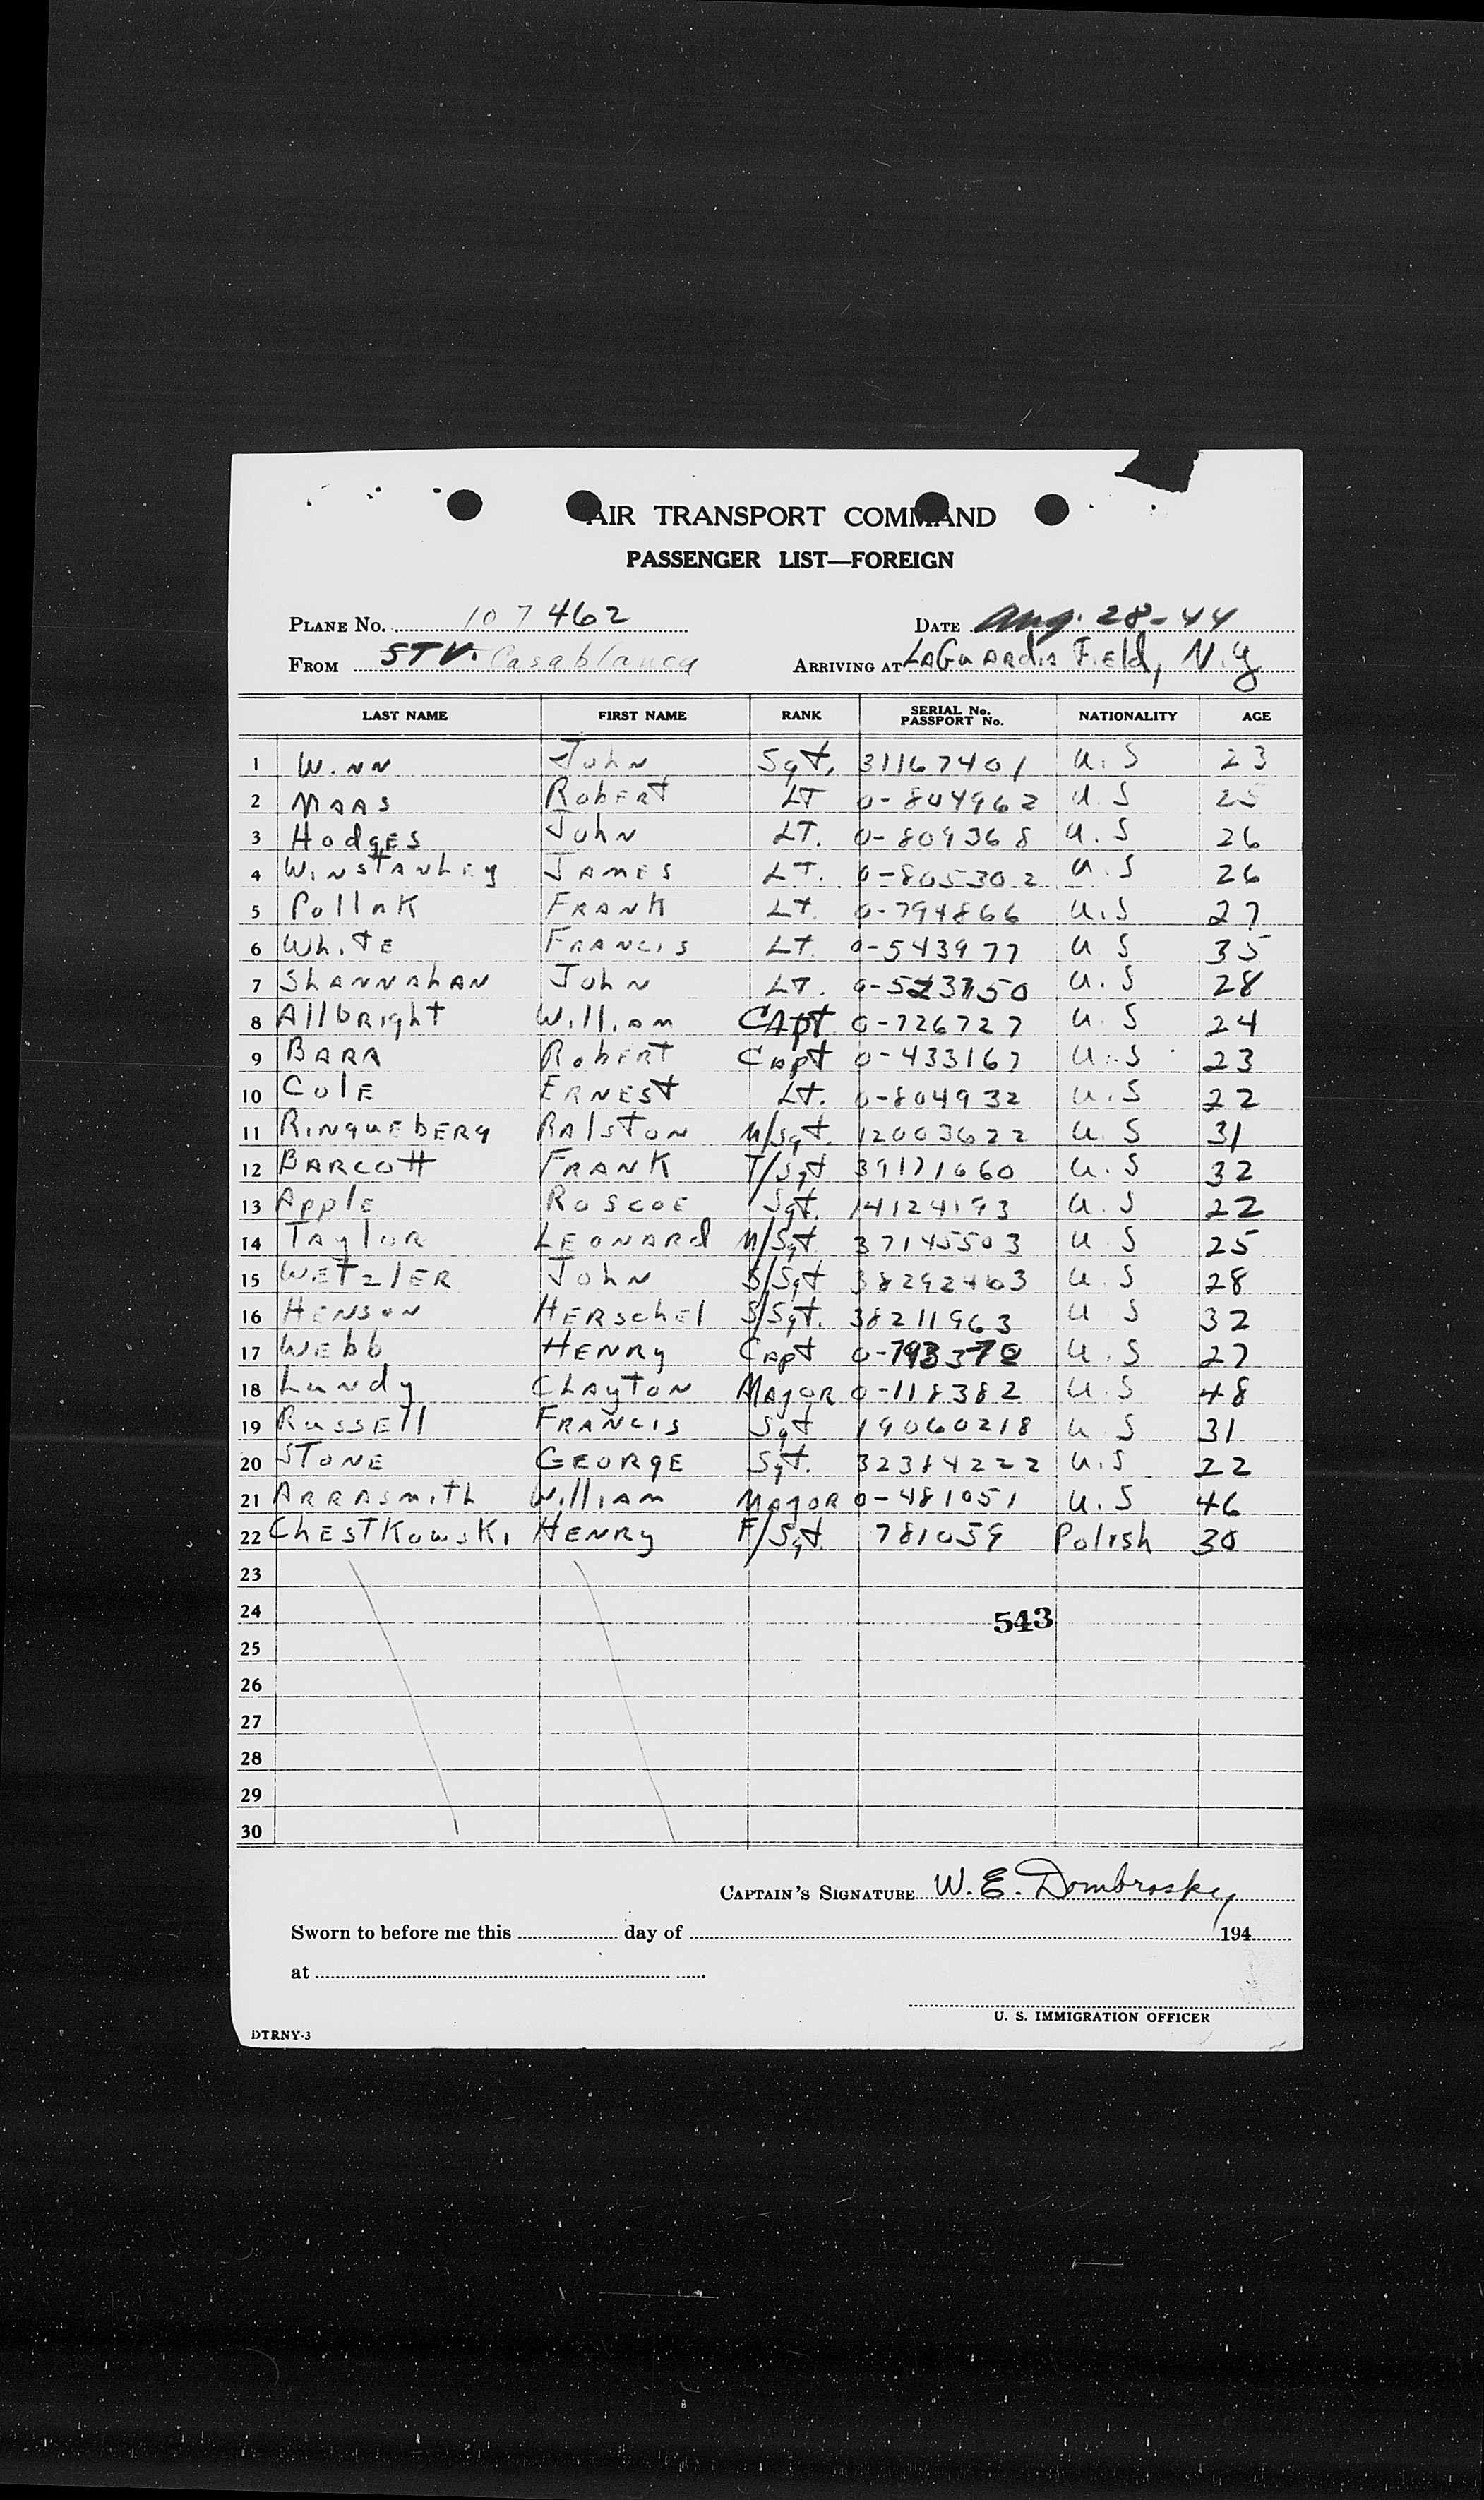 AIR TRANSPORT COMMAND
PASSENGER LIST—FOREIGN
PLANE No. 107462 DATE Aug. 28-44
FROM STV. Casablanca ARRIVING AT LAGUARDIA FIELD, N.Y
LAST NAME FIRST NAME RANK SERIAL No. PASSPORT No. NATIONALITY AGE
1 WINN JOHN Sgt. 31167401 U.S 23
2 MAAS ROBERT LT 0-804962 U.S 25
3 HODGES JOHN LT. 0-809368 U.S 26
4 WINSTANLEY JAMES LT. 0-805302 U.S 26
5 Pollak FRANK LT. 0-794866 U.S 27
6 White FRANCIS LT. 0-543977 U S 35
7 SHANNAHAN JOHN LT. U.S 28
8 Allbright William CApt 0-726727 U.S 24
9 BARR ROBERT Capt 0-433167 U.S 23
10 ColE ERNEST LT. 0-804932 U.S 22
11 RINGUEBERG RALSTON M/Sgt. 12003622 U.S 31
12 BARCOtt FRANK T/Sgt 39171660 U.S 32
13 Apple ROSCOE Sgt. 14124193 U.S 22
14 TAYLOR LEONARD M/Sgt 37145503 U S 25
15 WETZLER JOHN S/Sgt 38292463 U.S 28
16 HENSON HERSCHEL S/Sgt. 38211963 U S 32
17 WEbb HENRY Capt U.S 27
18 Lundy CLAYTON MAJOR 0-118382 U.S 48
19 RUSSEll FRANCIS Sgt 19060218 U S 31
20 STONE GEORGE Sgt. 32384222 U.S 22
21 ARRASMITH William MAJOR 0-481051 U.S 46
22 CHESTKOWSKI HENRY F/Sgt. 781059 Polish 30
23
24 543
25
26
27
28
29
30
CAPTAIN'S SIGNATURE W. E. Dombrosky
Sworn to before me this day of 194
at
U. S. IMMIGRATION OFFICER
DTRNY-3